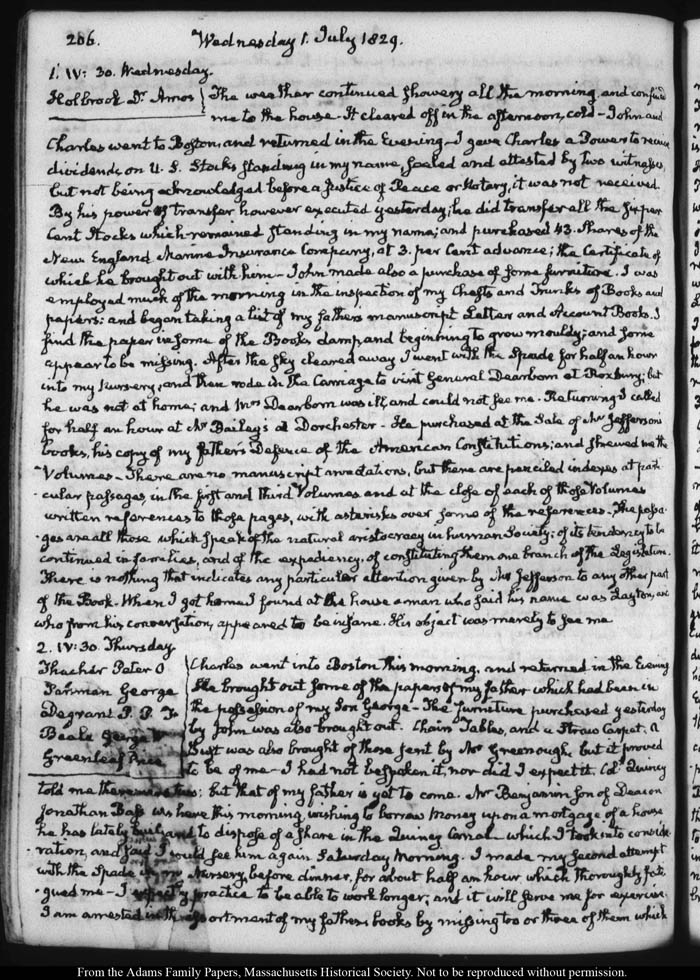 206.
Wednesday 1. July 1829.
1. IV: 30. Wednesday.
Holbrook Dr. Amos
The weather continued showery all the morning, and confined
me to the house. It cleared off in the afternoon, cold - John and
Charles went to Boston, and returned in the Evening - I gave Charles a Power to receive
dividends on U. S. Stocks standing in my name, sealed and attested by two witnesses,
but not being acknowledged before a Justice of Peace or Notary, it was not received.
By his power of transfer however executed yesterday, he did transfer all the six per
Cent Stocks which remained standing in my name; and purchased 43. Shares of the
New England Marine Insurance Company, at 3. per Cent advance; the Certificate of
which he brought out with him - John made also a purchase of some furniture. I was
employed much of the morning in the inspection of my Chests and Trunks of Books and
papers: and began taking a list of my fathers manuscript Letter and Account Books. I
find the paper in some of the Books damp and beginning to grow mouldy; and some
appear to be missing. After the sky cleared away I went with the Spade for half an hour
into my Nursery, and then rode in the Carriage to visit General Dearborn at Roxbury; but
he was not at home; and Mrs Dearborn was ill, and could not see me. Returning I called
for half an hour at Mr Bailey's at Dorchester - He purchased at the Sale of Mr Jefferson's
books, his copy of my father's Defence of the American Constitutions; and shewed me the
Volumes - There are no manuscript annotations, but there are penciled indexes at parti
cular passages, in the first and third Volumes and at the close of each of those Volumes
written references to those pages, with asterisks over some of the references - The passa-
ges are all those which speak of the natural aristocracy in human Society; of its tendency to be
continued in families, and of the expediency of constituting them one branch of the Legislature.
There is nothing that indicates any particular attention given by Mr Jefferson to any other part
of the Book. When I got home I found at the house a man who said his name was and
who from his conversation, appeared to be insane. His object was merely to see me
2. IV: 30. Thursday.
Thacher Peter O
Parman George
Degrand P. P. F.
Beale George W
Greenleaf Price
Charles went into Boston this morning, and returned in the Evening
He brought out some of the papers of my father which had been in
the possession of my Son George - The furniture purchased yesterday
by John was also brought out. Chairs Tables, and a Straw Carpet. A
Bust was also brought of those sent by Mr Greenough but it proved
to be of me - I had not bespoken it, nor did I expect it. Coll. Quincy
told me there were two: but that of my father is yet to come. Mr Benjamin son of Deacon
Jonathan Bass was here this morning, wishing to borrow Money upon a mortgage of a house
he has lately built, and to dispose of a share in the Quincy Canal - which I took into conside
ration, and said I would see him again Saturday Morning. I made my second attempt
with the Spade in my Nursery, before dinner, for about half an hour which thoroughly fati-
gued me - I expect by practice to be able to work longer; and it will serve me for exercise.
I am arrested in the assortment of my fathers books by missing two or three of them which
From the Adams Family Papers, Massachusetts Historical Society. Not to be reproduced without permission.